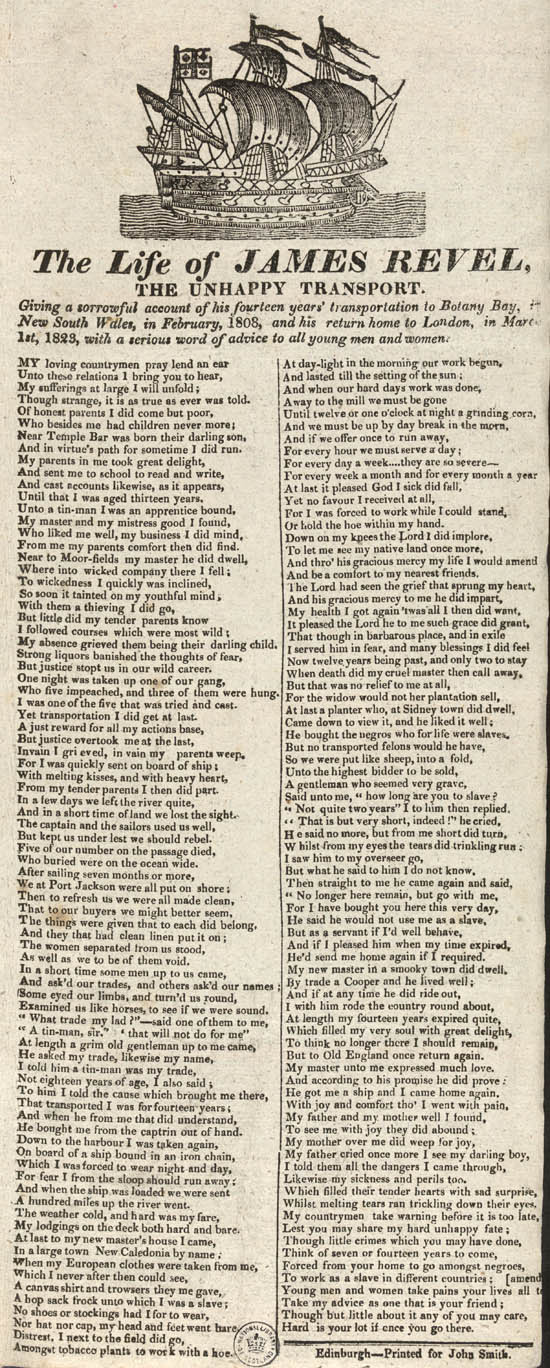 The Life of JAMES REVEL,
THE UNHAPPY TRANSPORT.
Giving a sorrowful account of his fourteen years' transportation to Botany Bay,
New South Wales, in February, 1808, and his return home to London, in Marc
1st, 1823, with a serious word of advice to all young men and women.
MY loving countrymen pray lend an ear
Unto these relations I bring you to hear,
My sufferings at large I will unfold;
Though strange, it is as true as ever was told.
Of honest parents I did come but poor,
Who besides me had children never more;
Near Temple Bar was born their darling son,
And in virtue's path for sometime I did run.
My parents in me took great delight,
And sent me to school to read and write,
And cast accounts likewise, as it appears,
Until that I was aged thirteen years.
Unto a tin-man I was an apprentice bound,
My master and my mistress good I found,
Who liked me well, my business I did mind,
From me my parents comfort then did find.
Near to Moor-fields my master he did dwell,
Where into wicked company there I fell;
To wickedness I quickly was inclined,
So soon it tainted on my youthful mind,
With them a thieving I did go,
But little did my tender parents know
I followed courses which were most wild;
My absence grieved them being their darling child.
Strong liquors banished the thoughts of fear,
But justice stopt us in our wild career.
One night was taken up one of our gang,
Who five impeached, and three of them were hung.
I was one of the five that was tried and cast.
Yet transportation I did get at last.
A just reward for all my actions base,
But justice overtook me at the last,
Invain I gri eved, in vain my parents weep,
For I was quickly sent on board of ship;
With melting kisses, and with heavy heart,
From my tender parents I then did part.
In a few days we left the river quite,
And in a short time of land we lost the sight.
The captain and the sailors used us well,
But kept us under lest we should rebel.
Five of our number on the passage died,
Who buried were on the ocean wide.
After sailing seven months or more,
We at Port Jackson were all put on shore;
Then to refresh us we were all made clean,
That to our buyers we might better seem,
The things were given that to each did belong,
And they that had clean linen put it on;
The women separated from us stood,
As well as we to be of them void.
In a short time some men up to us came,
And ask'd our trades, and others ask'd our names;
Some eyed our limbs, and turn'd us round,
Examined us like horses, to see if we were sound.
"What trade my lad?"—said one of them to me,
"A tin-man, sir." 'that will not do for me"
At length a grim old gentleman up to me came,
He asked my trade, likewise my name,
I told him a tin-man was my trade,
Not eighteen years of age, I also said;
To him I told the cause which brought me there,
That transported I was for fourteen years;
And when he from me that did understand,
He bought me from the captrin out of hand.
Down to the harbour I was taken again,
On board of a ship bound in an iron chain,
Which I was forced to wear night and day,
For fear I from the sloop should run away:
And when the ship was loaded we were sent
A hundred miles up the river went.
The weather cold, and hard was my fare,
My lodgings on the deck both hard and bare.
At last to my new master's house I came,
In a large town New Caledonia by name;
When my European clothes were taken from me,
Which I never after then could see,
A canvas shirt and trowsers they me gave,
A hop sack frock unto which I was a slave;
No shoes or stockings had I for to wear,
Nor hat nor cap, my head and feet went bare.
Distrest, I next to the field did go,
Amongst tobacco plants to work with a hoe.
At day-light in the morning our work begun,
And lasted till the setting of the sun;
And when our hard days work was done,
Away to the mill we must be gone
Until twelve or one o'clock at night a grinding corn,
And we must be up by day break in the morn,
And if we offer once to run away,
For every hour we must serve a day;
For every day a week....they are so severe—
For every week a month and for every month a year
At last it pleased God I sick did fall,
Yet no favour I received at all,
For I was forced to work while I could stand,
Or hold the hoe within my hand.
Down on my knees the Lord I did implore,
To let me see my native land once more,
And thro' his gracious mercy my life I would amend
And be a comfort to my nearest friends.
The Lord had seen the grief that sprung my heart,
And his gracious mercy to me he did impart,
My health I got again 'twas all I then did want,
It pleased the Lord he to me such grace did grant,
That though in barbarous place, and in exile
I served him in fear, and many blessings I did feel
Now twelve years being past, and only two to stay
When death did my cruel master then call away,
But that was no relief to me at all,
For the widow would not her plantation sell,
At last a planter who, at Sidney town did dwell,
Came down to view it, and he liked it well;
He bought the negros who for life were slaves,
But no transported felons would he have,
So we were put like sheep, into a fold,
Unto the highest bidder to be sold,
A gentleman who seemed very grave,
Said unto me, "how long are you to slave?
"Not quite two years" I to him then replied.
"That is but very short, indeed!" he cried,
He said no more, but from me short did turn,
Whilst from my eyes the tears did trinkling run:
I saw him to my overseer go,
But what he said to him I do not know,
Then straight to me he came again and said,
"No longer here remain, but go with me,
For I have bought you here this very day,
He said he would not use me as a slave,
But as a servant if I'd well behave,
And if I pleased him when my time expired,
He'd send me home again if I required.
My new master in a smooky town did dwell,
By trade a Cooper and he lived well;
And if at any time he did ride out,
I with him rode the country round about,
At length my fourteen years expired quite,
Which filled my very soul with great delight,
To think no longer there I should remain,
But to Old England once return again.
My master unto me expressed much love.
And according to his promise he did prove:
He got me a ship and I came home again.
With joy and comfort tho' I went with pain,
My father and my mother well I found,
To see me with joy they did abound;
My mother over me did weep for joy,
My father cried once more I see my darling boy,
I told them all the dangers I came through,
Likewise my sickness and perils too.
Which filled their tender hearts with sad surprise,
Whilst melting tears ran trickling down their eyes.
My countrymen take warning before it is too late,
Lest you may share my hard unhappy fate;
Though little crimes which you may have done,
Think of seven or fourteen years to come,
Forced from your home to go amongst negroes,
To work as a slave in different countries; [amend
Young men and women take pains your lives all t
Take my advice as one that is your friend;
Though but little about it any of you may care,
Hard is your lot if once you go there.
Edinburgh—Printed for John Smith.